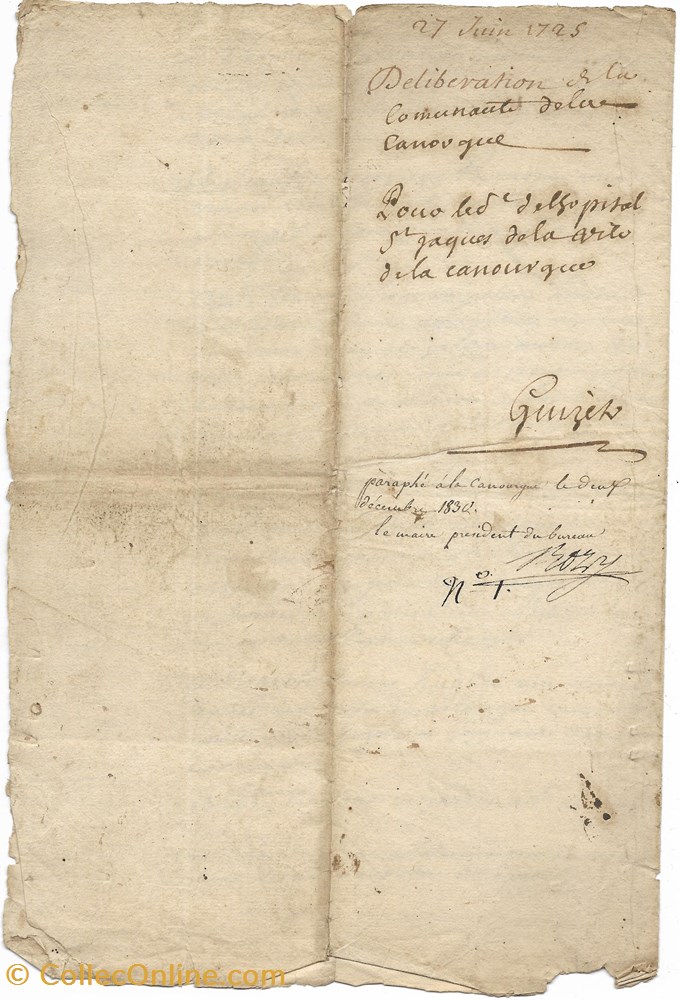 27 Juin 1725
Deliberation de la
Comunauté dela
Canorgue
Pour led.t delhopital
St jaques dela ville
de la canourgue
paraphé à la canourgue le deux
décembre 1830.
le maire president du bureau
No. 1.
© CollecOnline.com